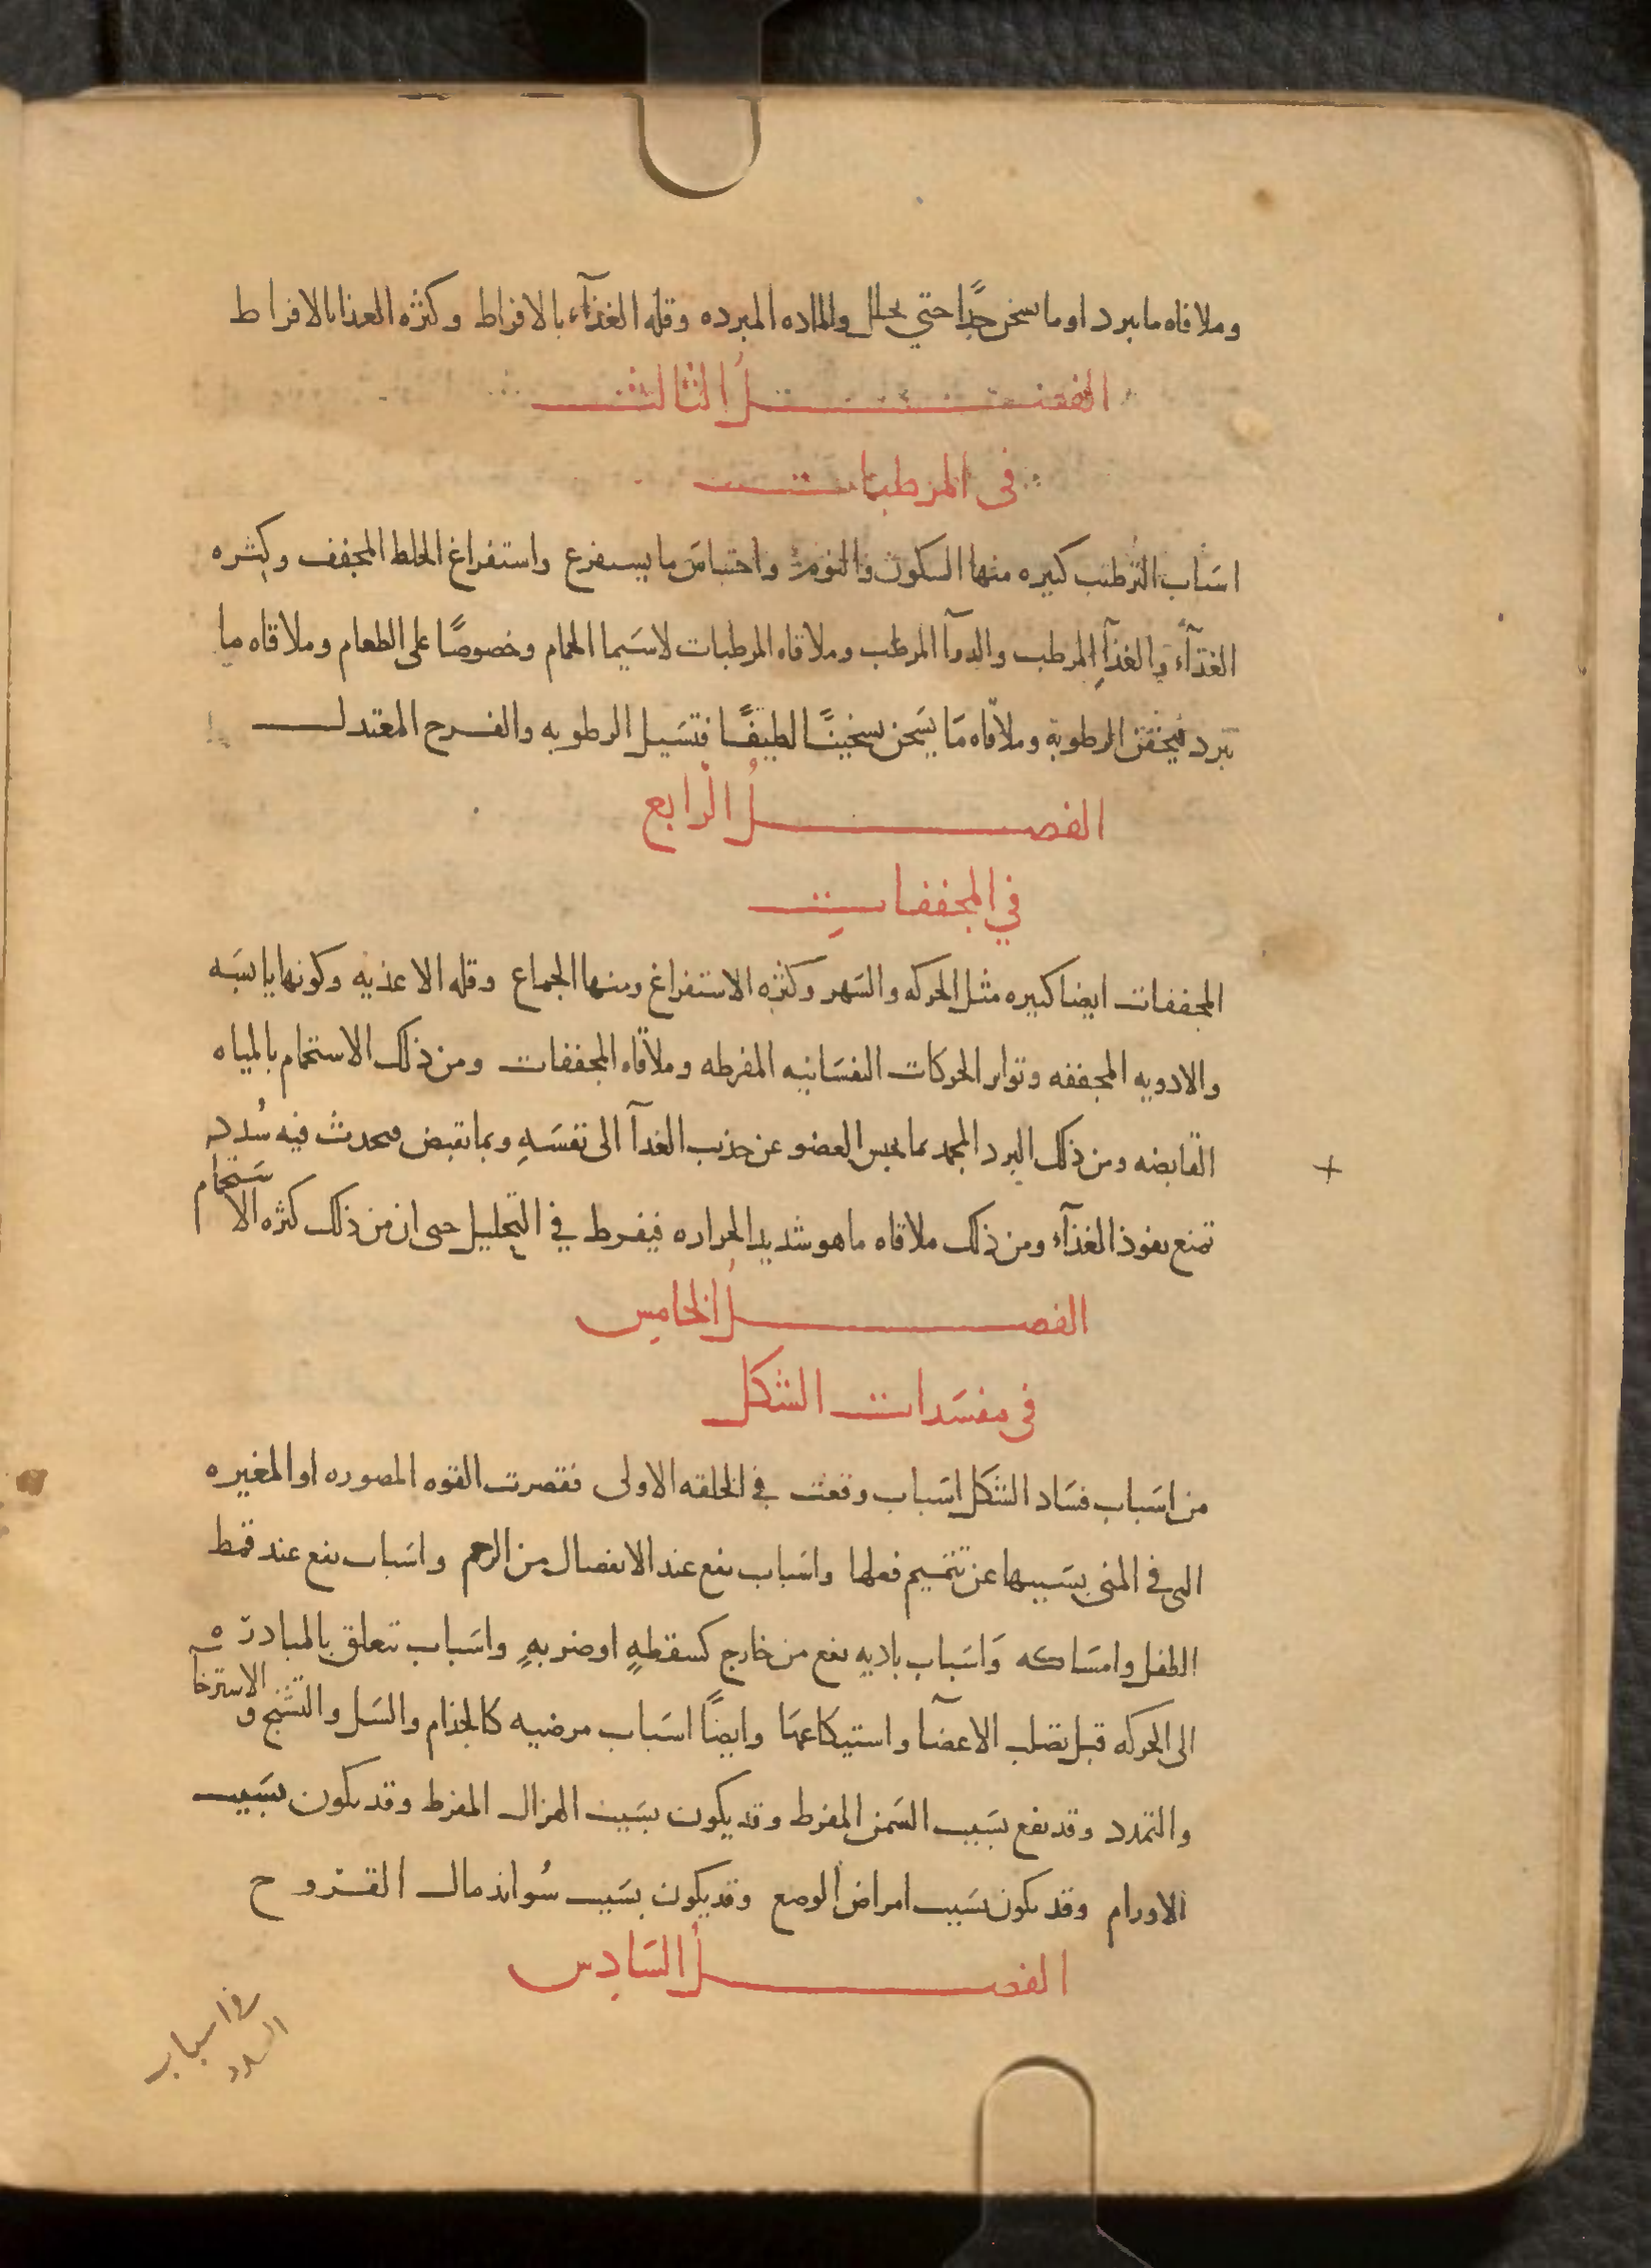 وملاقاه ما يبرد او ما يسخن جدًا حتي يحلل والماده المبرده وقله الغذآء بالافراط وكثره الغذا بالافراط
الفصل الثالث
في المرطبات
اسَباب الترطيب كثيره منها السكون والنوم واحتباسَ ما يستفرغ واستفراغ الخلط المجفف وكثره
الغذآء والغذآءِ المرطب والدوآ المرطب وملاقاه المرطبات لاسَيما الحمام وخصوصًا على الطعام وملاقاه ما
يبرد فيحقن الرطوبة وملاقاه مَا يسَخن تسخينًا لطيفًا فتسَيل الرطوبه والفرح المعتدل
الفصلُ الرابع
في المجففاتِ
المجففات ايضا كثيره مثل الحركه والسَهر وكثره الاستفراغ ومنها الجماع وقله الاغذيه وكونها يابسَه
والادويه المجففه وتواتر الحركات النفسَانيه المفرطه وملاقاه المجففات ومن ذلك الاستحمام بالمياه
القابضه ومن ذلك البرد المجمد بما يحبس العضو عن جذب الغذآ الى نفسَهِ وبما يقبض فيحدث فيه سُدد
تمنع نفوذ الغذآء ومن ذلك ملاقاه ما هو شديد الحراره فيفرط في التحليل حتى ان من ذلك كثره الاستحمام
الفصلُ الخامس
في مفسَدات الشكل
من اسَباب فسَاد الشكل اسَباب وقعت في الخلقه الاولى فقصرت القوه المصوره او المغيره
التي في المنى بسَببها عن تتميم فعلها واسَباب تقع عند الانفصال من الرحم واسَباب تقع عند قمط
الطفل وامسَاكه وَاسَباب باديه تقع من خارج كسقطهٍ او ضربهٍ واسَباب تتعلق بالمبادره
الى الحركه قبل تصلب الاعضآ واستيكاعهَا وايضًا اسَباب مرضيه كالجذام والسَل والتشنج والاسترخا
والتمدد وقد تقع بسَبب السَمن المفرط وقد يكون بسَبب الهزال المفرط وقد يكون بسَبب
الاورام وقد يكون بسَبب امراض الوضع وقد يكون بسَبب سُو اندمال القروح
الفصلُ السَادِس
في اسباب
السدد